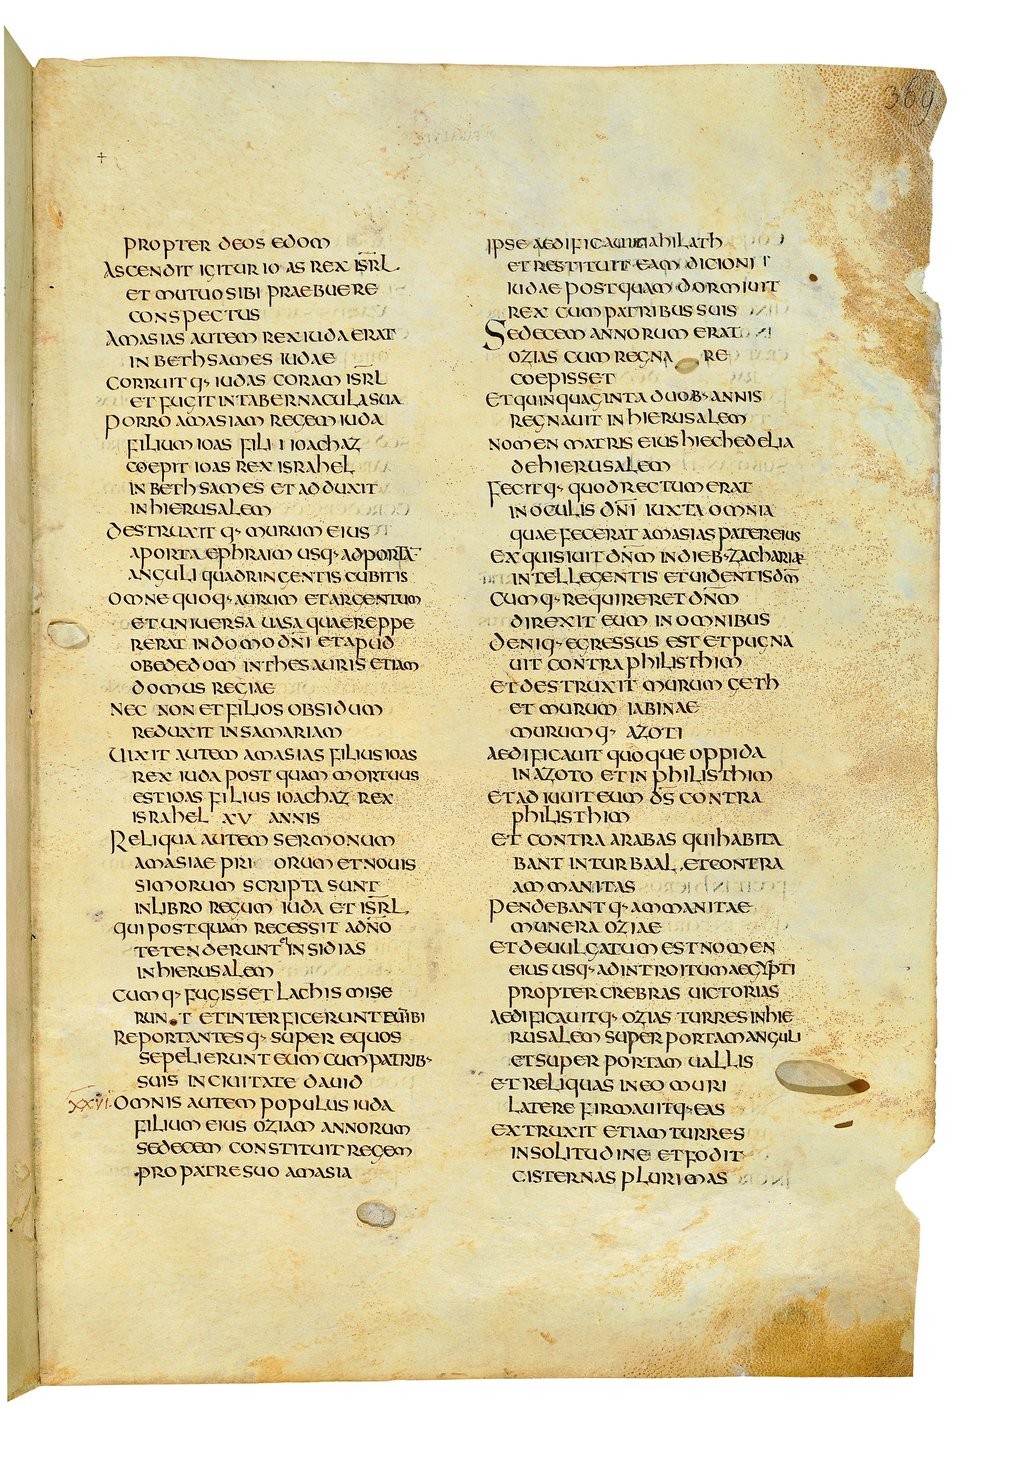 369
+
PROPTER DEOS EDOM
ASCENDIT IGITUR IOAS REX ISRL
ET MUTUO SIBI PRAEBUERE
CONSPECTUS
AMASIAS AUTEM REX IUDA ERAT
IN BETHSAMES IUDAE
CORRUITQ· IUDAS CORAM ISRL
ET FUGIT IN TABERNACULA SUA
PORRO AMASIAM REGEM IUDA
FILIUM IOAS FILII IOACHAZ
COEPIT IOAS REX ISRAHEL
IN BETHSAMES ET ADDUXIT
IN HIERUSALEM
DESTRUXITQ· MURUM EIUS
A PORTA EPHRAIM USQ· AD PORTA
ANGULI QUADRINGENTIS CUBITIS
OMNE QUOQ· AURUM ET ARGENTUM
ET UNIUERSA UASA QUAE REPPE
RERAT IN DOMO DNI ET APUD
OBEDEDOM IN THESAURIS ETIAM
DOMUS REGIAE
NEC NON ET FILIOS OBSIDUM
REDUXIT IN SAMARIAM
UIXIT AUTEM AMASIAS FILIUS IOAS
REX IUDA POSTQUAM MORTUUS
EST IOAS FILIUS IOACHAZ REX
ISRAHEL XV ANNIS
RELIQUA AUTEM SERMONUM
AMASIAE PRIORUM ET NOUIS
SIMORUM SCRIPTA SUNT
IN LIBRO REGUM IUDA ET ISRL
QUI POSTQUAM RECESSIT A DNO
TETENDERUNT EI INSIDIAS
IN HIERUSALEM
CUMQ· FUGISSET LACHIS MISE
RUNT ET INTERFICERUNT EUM IBI
REPORTANTESQ· SUPER EQUOS
SEPELIERUNT EUM CUM PATRIB·
SUIS IN CIUITATE DAUID
XXVI OMNIS AUTEM POPULUS IUDA
FILIUM EIUS OZIAM ANNORUM
SEDECEM CONSTITUIT REGEM
PRO PATRE SUO AMASIA
IPSE AEDIFICAUIT AHILATH
ET RESTITUIT EAM DICIONI
IUDAE POSTQUAM DORMIUIT
REX CUM PATRIBUS SUIS
SEDECEM ANNORUM ERAT
OZIAS CUM REGNARE
COEPISSET
ET QUINQUAGINTA DUOB· ANNIS
REGNAUIT IN HIERUSALEM
NOMEN MATRIS EIUS HIECHEDELIA
DE HIERUSALEM
FECITQ· QUOD RECTUM ERAT
IN OCULIS DNI IUXTA OMNIA
QUAE FECERAT AMASIAS PATER EIUS
EXQUISIUIT DNM IN DIEB· ZACHARIAE
INTELLEGENTIS ET UIDENTIS DM
CUMQ· REQUIRERET DNM
DIREXIT EUM IN OMNIBUS
DENIQ· EGRESSUS EST ET PUGNA
UIT CONTRA PHILISTHIM
ET DESTRUXIT MURUM GETH
ET MURUM IABINAE
MURUMQ· AZOTI
AEDIFICAUIT QUOQUE OPPIDA
IN AZOTO ET IN PHILISTHIM
ET ADIUUIT EUM DS CONTRA
PHILISTHIM
ET CONTRA ARABAS QUI HABITA
BANT IN TURBAAL ET CONTRA
AMMANITAS
PENDEBANTQ· AMMANITAE
MUNERA OZIAE
ET DEUULGATUM EST NOMEN
EIUS USQ· AD INTROITUM AEGYPTI
PROPTER CREBRAS UICTORIAS
AEDIFICAUITQ· OZIAS TURRES IN HIE
RUSALEM SUPER PORTAM ANGULI
ET SUPER PORTAM UALLIS
ET RELIQUAS IN EO MURI
LATERE FIRMAUITQ· EAS
EXTRUXIT ETIAM TURRES
IN SOLITUDINE ET FODIT
CISTERNAS PLURIMAS